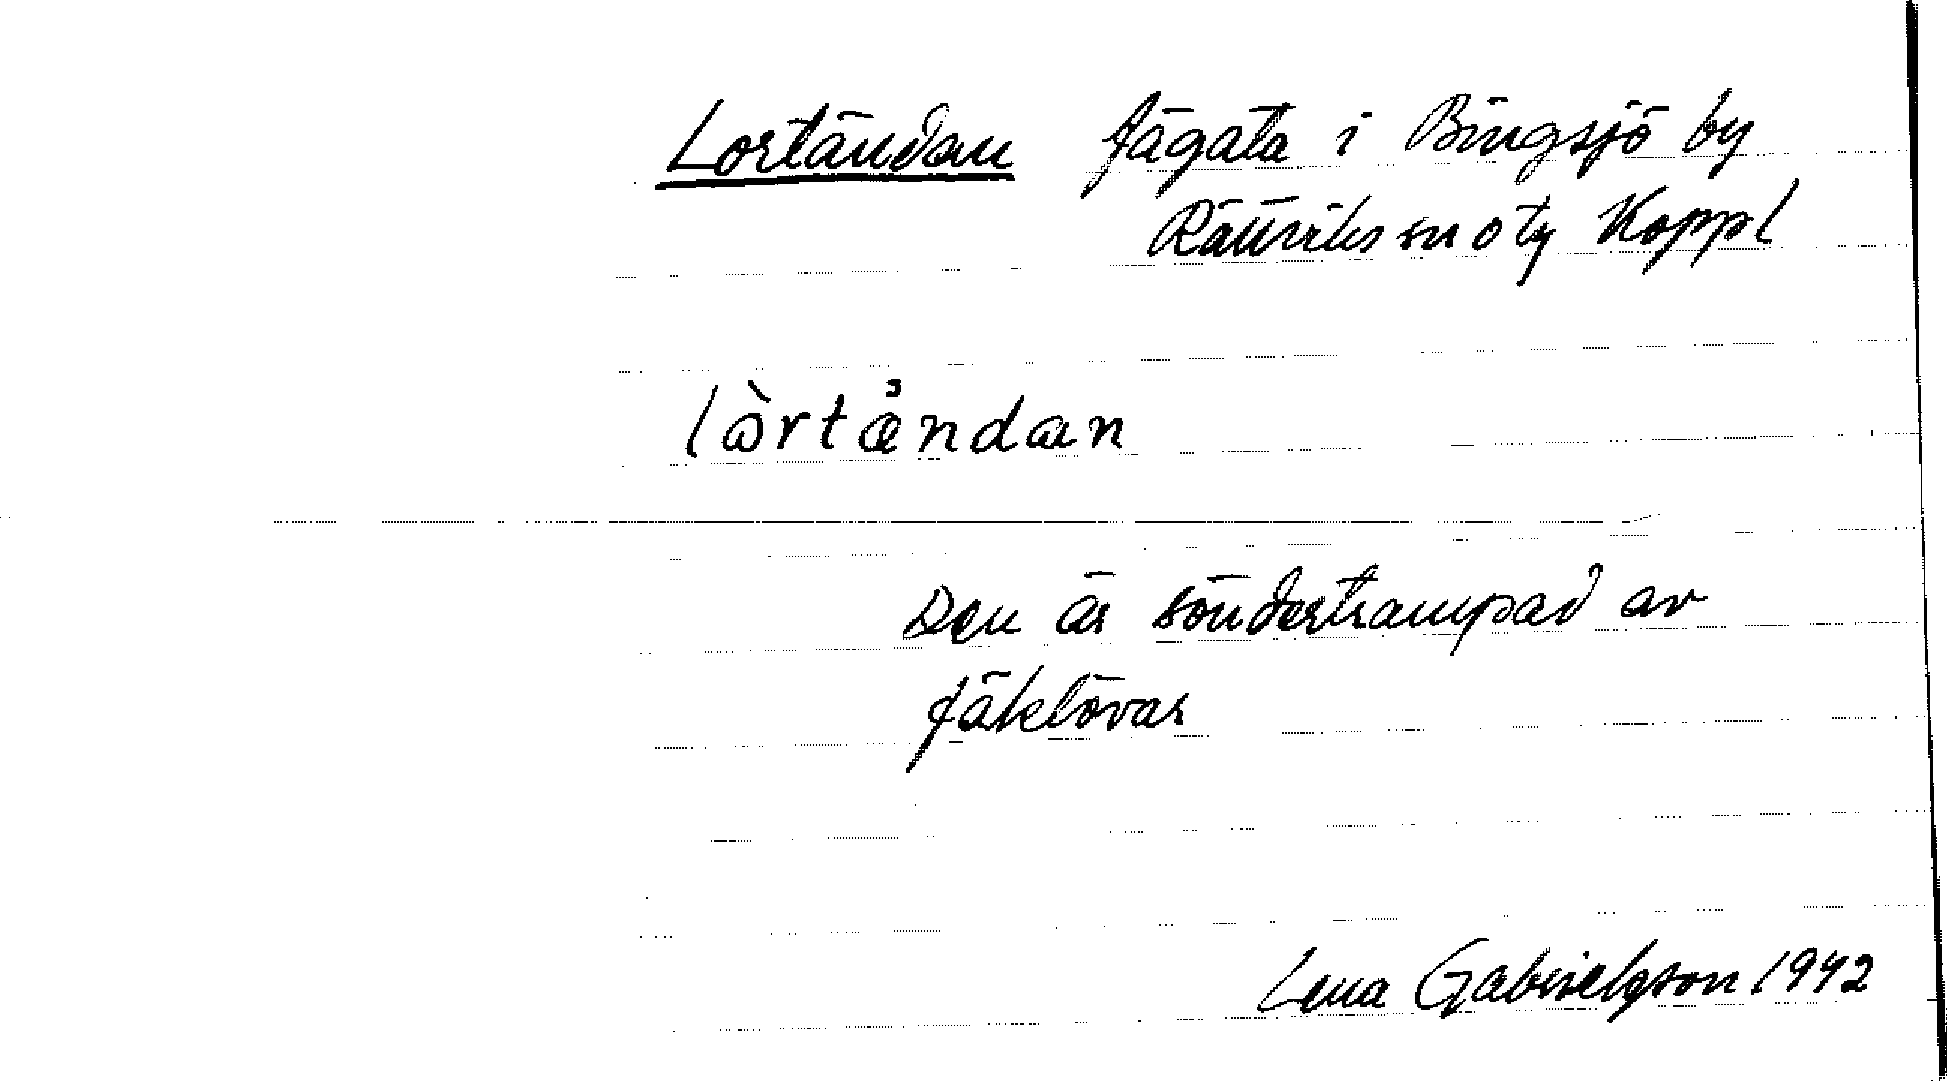 Lortändan fägata i Bingsjö by
Rättviks snoty Koppl
lòrtändan
Den är söndertrampad av
fäklövar
Lena Gabrielsson 1942